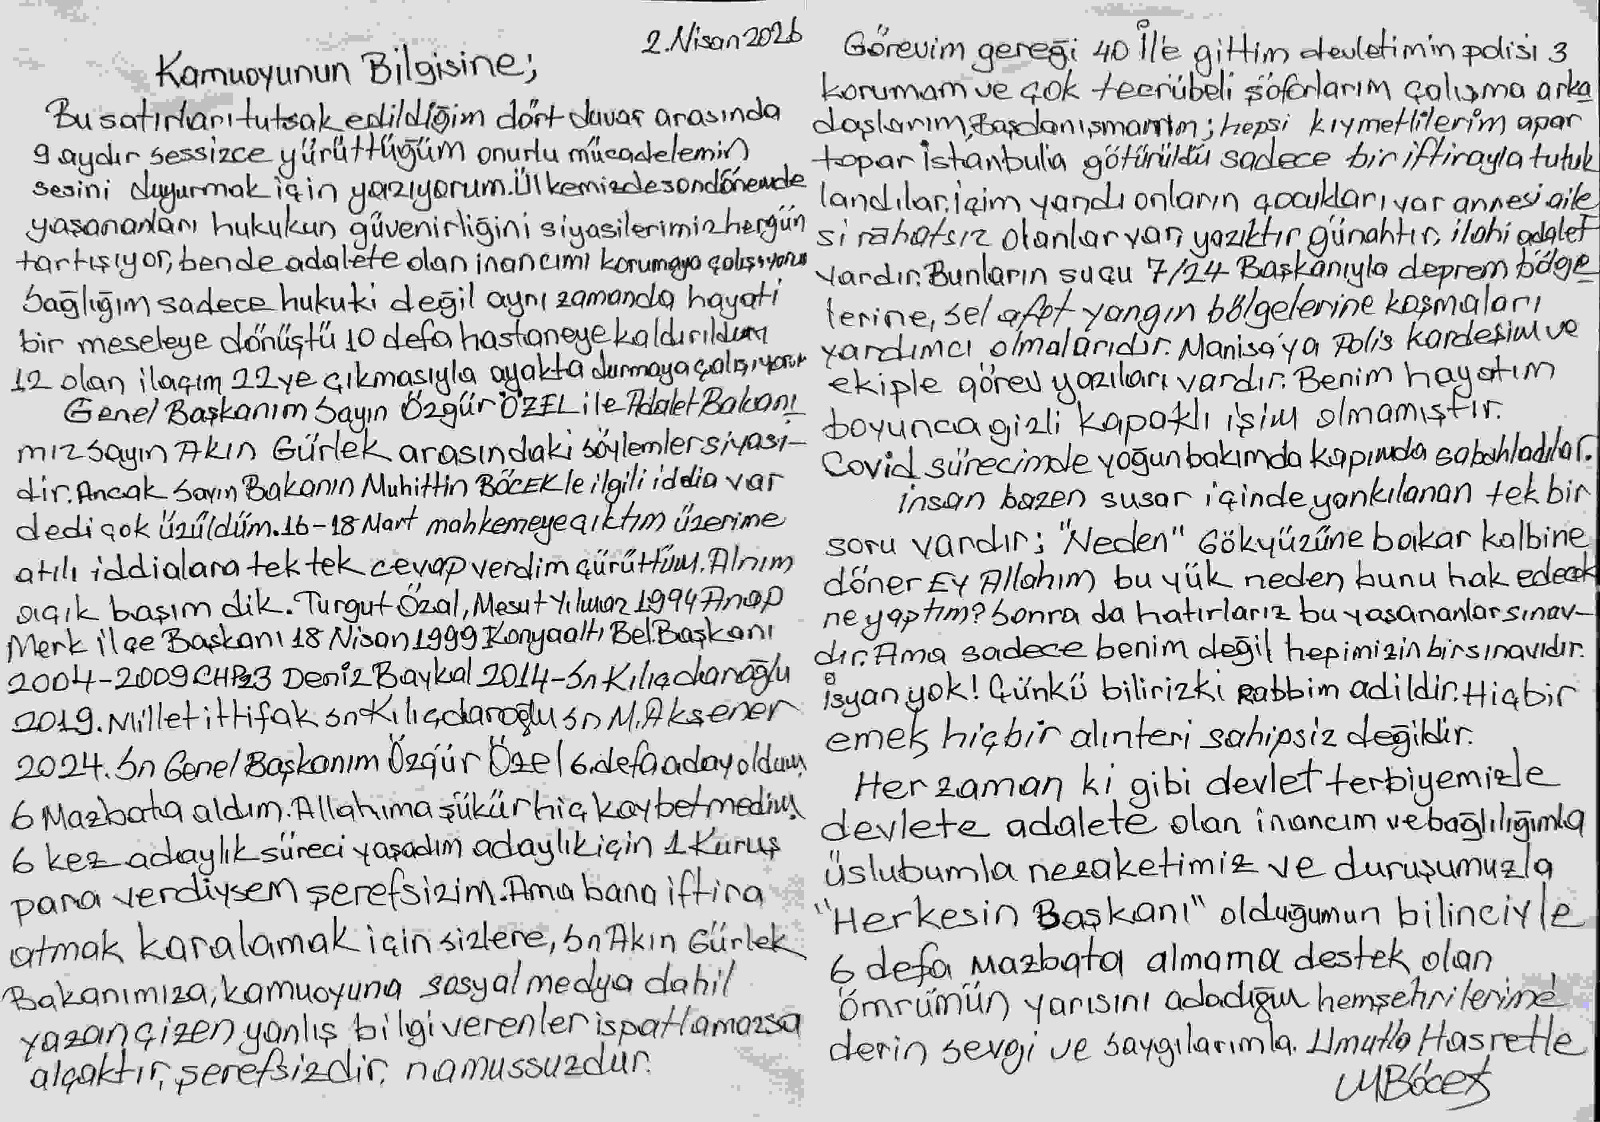 2.Nisan 2026
Kamuoyunun Bilgisine;
Bu satırları tutsak edildiğim dört duvar arasında
9 aydır sessizce yürüttüğüm onurlu mücadelemin
sesini duyurmak için yazıyorum.Ülkemizde son dönemde
yaşananları hukukun güvenirliğini siyasilerimiz hergün
tartışıyor, bende adalete olan inancımı korumaya çalışıyorum
Sağlığım sadece hukuki değil aynı zamanda hayati
bir meseleye dönüştü 10 defa hastaneye kaldırıldım
12 olan ilaçım 22 ye çıkmasıyla ayakta durmaya çalışıyorum
Genel Başkanım Sayın Özgür ÖZEL ile Adalet Bakanı
mız Sayın Akın Gürlek arasındaki söylemler siyasi-
dir. Ancak Sayın Bakanın Muhittin BÖCEK le ilgili iddia var
dedi çok üzüldüm. 16-18 Mart mahkemeye çıktım üzerime
atılı iddialara tek tek cevap verdim çürüttüm. Alnım
açık başım dik. Turgut Özal, Mesut Yılmaz 1994 Anap
Merk ilçe Başkanı 18 Nisan 1999 Konyaaltı Bel.Başkanı
2004-2009 CHP Deniz Baykal 2014-Sn Kılıçdaroğlu
2019. Millet ittifak Sn Kılıçdaroğlu Sn M.Akşener
2024. Sn Genel Başkanım Özgür Özel 6.defa aday oldum
6 Mazbata aldım. Allahıma şükür hiç kaybetmedim
6 kez adaylık süreci yaşadım adaylık için 1 Kuruş
para verdiysem şerefsizim. Ama bana iftira
atmak karalamak için sizlere, Sn Akın Gürlek
Bakanımıza, kamuoyuna sosyal medya dahil
yazan çizen yanlış bilgi verenler ispatlamazsa
alçaktır, şerefsizdir, namussuzdur.
Görevim gereği 40 İl'e gittim devletimin polisi 3
korumam ve çok tecrübeli şöförlarım çalışma arka
daşlarım, Başdanışmanım; hepsi kıymetlilerim apar
topar İstanbula götürüldü sadece bir iftirayla tutuk
landılar. içim yandı onların çocukları var annesi aile
si rahatsız olanlar var, yazıktır günahtır, ilahi adalet
vardır. Bunların suçu 7/24 Başkanıyla deprem bölge
lerine, sel afet yangın bölgelerine koşmaları
yardımcı olmalarıdır. Manisa'ya Polis kardeşim ve
ekiple görev yazıları vardır. Benim hayatım
boyunca gizli kapaklı işim olmamıştır.
Covid sürecimde yoğun bakımda kapımda sabahladılar.
insan bazen susar içinde yankılanan tek bir
soru vardır; "Neden" Gökyüzüne bakar kalbine
döner Ey Allahım bu yük neden bunu hak edecek
ne yaptım? Sonra da hatırlarız bu yaşananlar sınav-
dır. Ama sadece benim değil hepimizin bir sınavıdır.
İsyan yok! Çünkü biliriz ki Rabbim adildir. Hiçbir
emek hiçbir alınteri sahipsiz değildir.
Her zaman ki gibi devlet terbiyemizle
devlete adalete olan inancım ve bağlılığımla
üslubumla nezaketimiz ve duruşumuzla
"Herkesin Başkanı" olduğumun bilinciyle
6 defa Mazbata almama destek olan
Ömrümün yarısını adadığım hemşehrilerime
derin sevgi ve saygılarımla. Umutla Hasretle
MBöcek